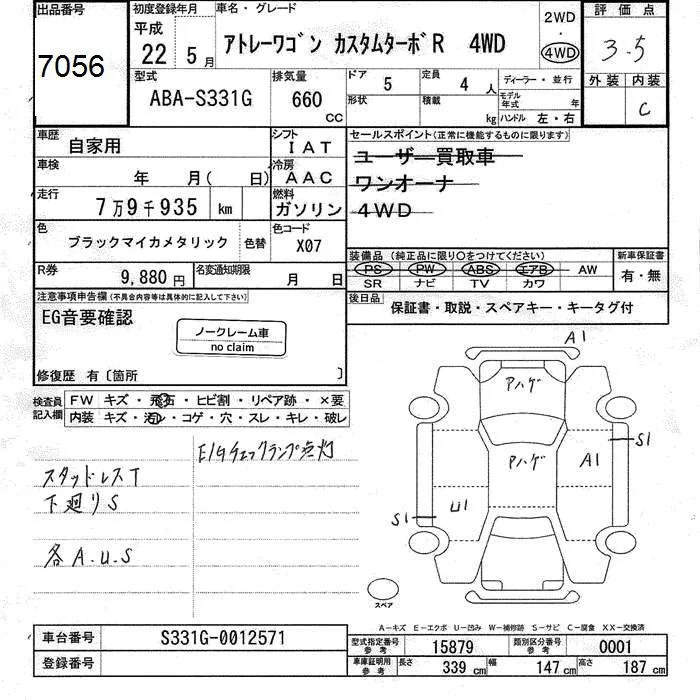 出品番号
7056
初度登録年月
平成
22 5月
車名・グレード
アトレーワゴン カスタムターボR 4WD
2WD
・
4WD
評価点
3.5
外装 内装
C
型式
ABA-S331G
排気量
660 CC
ドア 5
定員 4人
形状
積載 kg
ディーラー・並行
モデル年式 年
ハンドル 左・右
車歴
自家用
シフト
IAT
車検
年 月( 日)
冷房
AAC
走行
7万9千935 km
燃料
ガソリン
色
ブラックマイカメタリック
色替
色コード
X07
R券
9,880円
名変通知期限
月 日
セールスポイント(正常に機能するものに限ります)
ユーザー買取車
ワンオーナ
4WD
装備品 (純正品に限り○をつけてください)
PS PW ABS エアB AW
SR ナビ TV カワ
新車保証書
有・無
後日品
保証書・取説・スペアキー・キータグ付
注意事項申告欄(不具合内容等は具体的に記入して下さい)
EG音要確認
ノークレーム車
no claim
修復歴 有〔箇所 〕
検査員記入欄
FW キズ・飛石・ヒビ割・リペア跡・×要
内装 キズ・汚レ・コゲ・穴・スレ・キレ・破レ
E/Gチェックランプ点灯
スタッドレスT
下廻りS
各A.U.S
A1
アハゲ
S1
アハゲ
A1
U1
S1
スペア
A-キズ E-エクボ U-凹み W-補修跡 S-サビ C-腐食 XX-交換済
車台番号
S331G-0012571
登録番号
型式指定番号
参考
15879
類別区分番号
参考
0001
車庫証明用
参考
長さ 339cm 幅 147cm 高さ 187cm